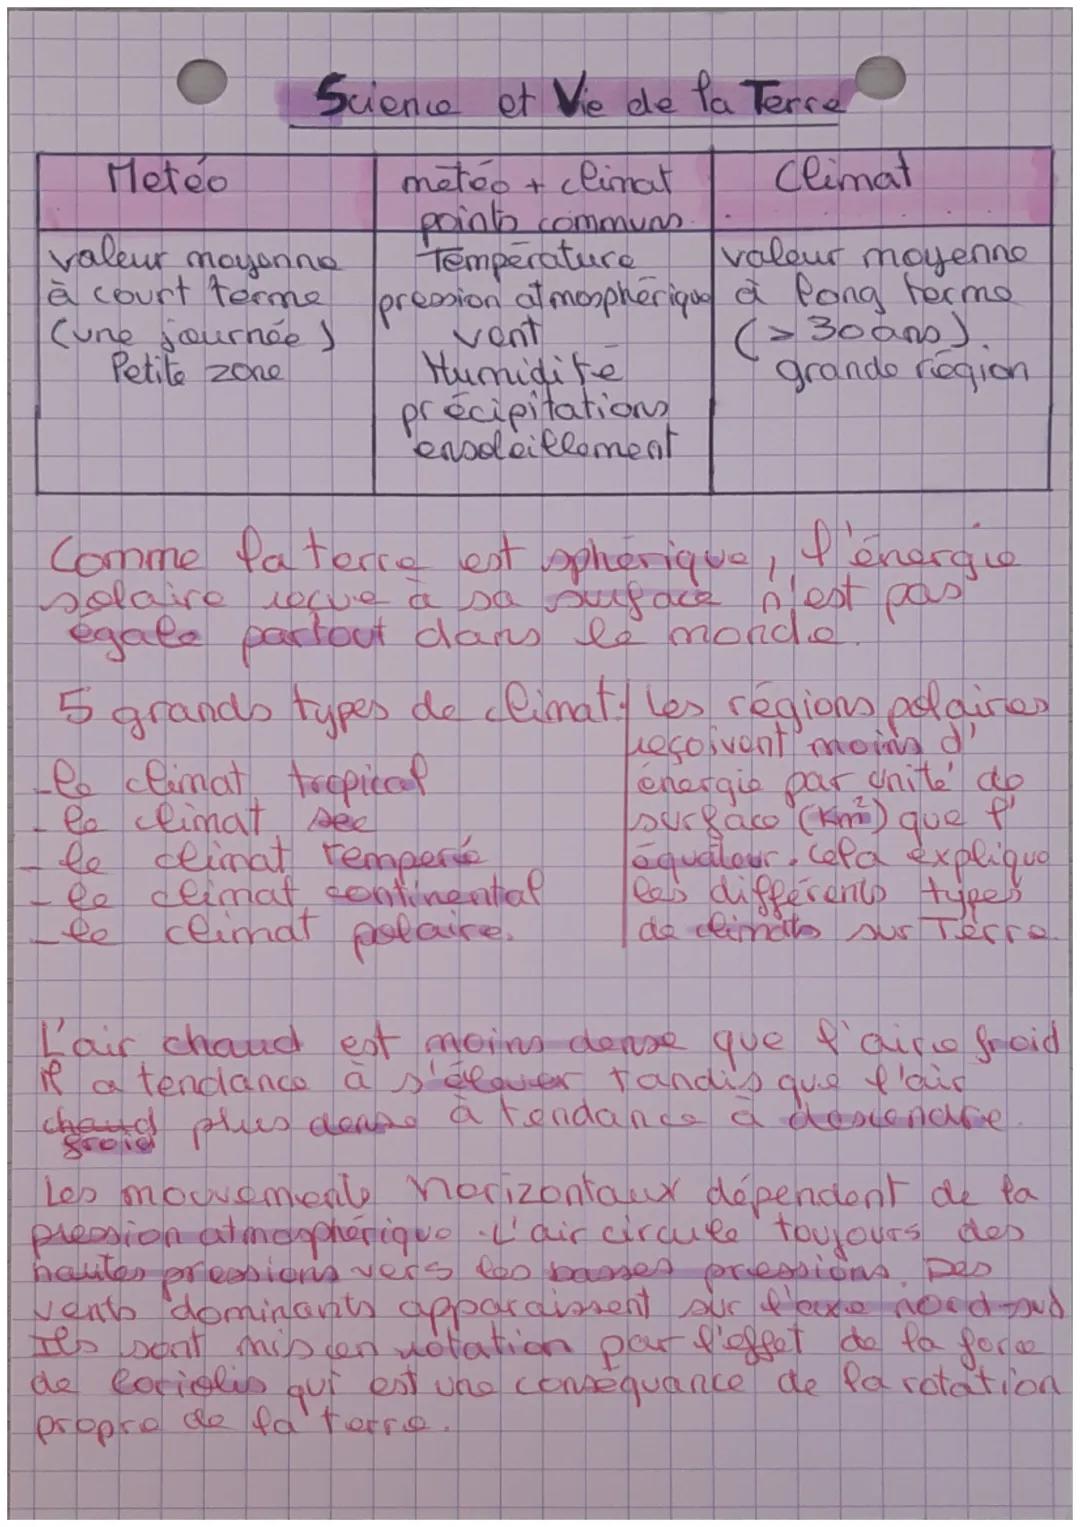 Science et Vie de la Terre
Meteo
météo + climat
points communs.
Climat
valeur moyenne
à court terme
(une journée)
Petite zone
Température
pression atmosphérique
vent
Humidité
précipitations
ensoleillement
valeur moyenne
à long terme
(> 30 ans).
grande région
Comme la terre est sphérique, l'énergie
solaire reçue à sa surface n'est pas
égale partout dans le monde.
5 grands types de climat:
- le climat tropical
- le climat sec
- le climat tempéré
- le climat continental
- le climat polaire.
Les régions polaires
reçoivent moins d'
énergie par unité de
surface (Km²) que l'
équateur. Cela explique
les différents types
de climats sur Terre.
L'air chaud est moins dense que l'aire froid
il a tendance à s'élever tandis que l'air
chaud froid plus dense à tendance à descendre.
Les mouvements horizontaux dépendent de la
pression atmosphérique. L'air circule toujours des
hautes pressions vers les basses pressions. Des
vents dominants apparaissent sur l'axe nord-sud
Ils sont mis en rotation par l'effet de la force
de coriolis qui est une conséquance de la rotation
propre de la terre.